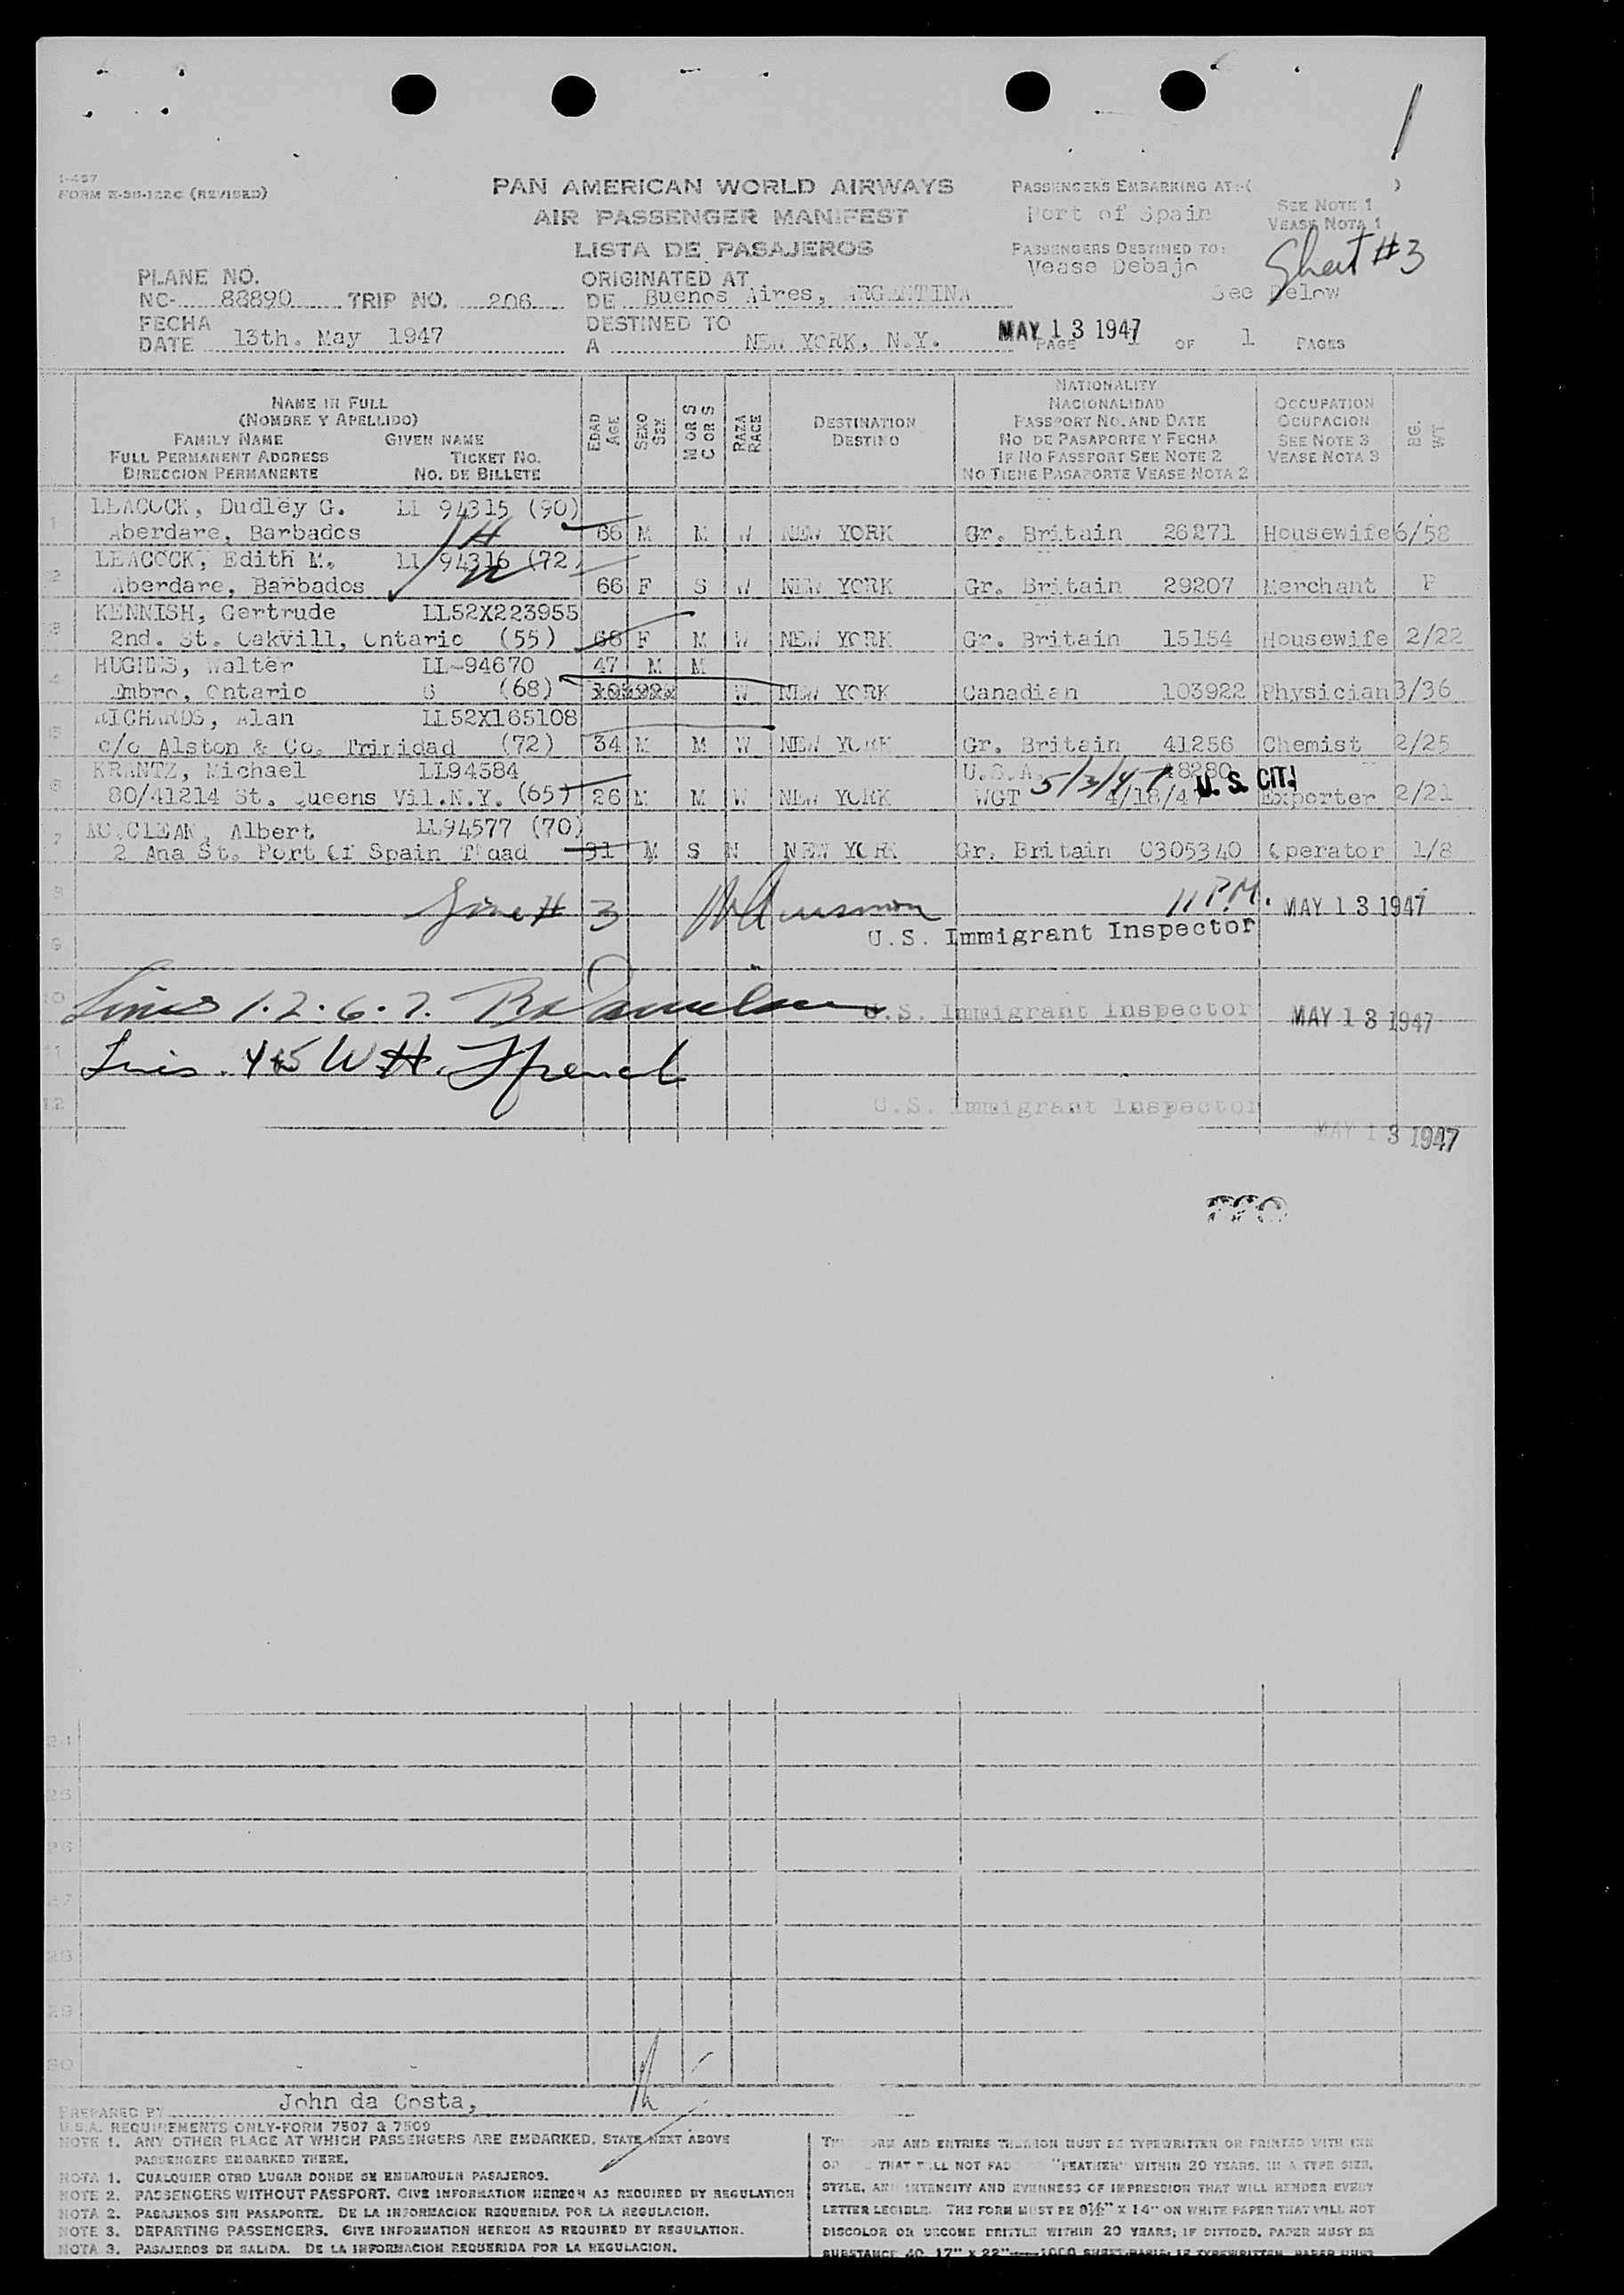 1-457
FORM E-36-122C (REVISED)
PAN AMERICAN WORLD AIRWAYS
AIR PASSENGER MANIFEST
LISTA DE PASAJEROS
PASSENGERS EMBARKING AT:-( )
Port of Spain
SEE NOTE 1
VEASE NOTA 1
PASSENGERS DESTINED TO:
Vease Debajo
Sheet #3
See Below
PLANE NO.
NC- 88890 TRIP NO. 206
ORIGINATED AT
DE Buenos Aires, ARGENTINA
FECHA
DATE 13th. May 1947
DESTINED TO
A NEW YORK, N.Y.
MAY 13 1947
PAGE 1 OF 1 PAGES
NAME IN FULL
(NOMBRE Y APELLIDO)
FAMILY NAME GIVEN NAME
FULL PERMANENT ADDRESS TICKET NO.
DIRECCION PERMANENTE NO. DE BILLETE
EDAD AGE
SEXO SEX
M OR S C OR S
RAZA RACE
DESTINATION
DESTINO
NATIONALITY
NACIONALIDAD
PASSPORT NO. AND DATE
NO DE PASAPORTE Y FECHA
IF NO PASSPORT SEE NOTE 2
NO TIENE PASAPORTE VEASE NOTA 2
OCCUPATION
OCUPACION
SEE NOTE 3
VEASE NOTA 3
BG. WT.
1 LEACOCK, Dudley G. LL 94315 (90)
Aberdare, Barbados 66 M M W NEW YORK Gr. Britain 26271 Housewife 6/58
2 LEACOCK, Edith M. LL 94316 (72)
Aberdare, Barbados 66 F S W NEW YORK Gr. Britain 29207 Merchant P
3 KENNISH, Gertrude LL52X223955
2nd. St. Oakvill, Ontario (55) 68 F M W NEW YORK Gr. Britain 15154 Housewife 2/22
4 HUGHES, Walter LL-94670 47 M M
Embro, Ontario G (68) W NEW YORK Canadian 103922 Physician 3/36
5 RICHARDS, Alan LL52X165108
c/o Alston & Co. Trinidad (72) 34 M M W NEW YORK Gr. Britain 41256 Chemist 2/25
6 KRANTZ, Michael LL94584 U.S.A. 48280
80/41214 St. Queens Vil.N.Y. (65) 26 M M W NEW YORK WGT 5/3/47 4/18/47 U.S. CIT. Exporter 2/21
7 MC.CLEAN, Albert LL94577 (70)
2 Ana St. Port Of Spain T'dad 31 M S N NEW YORK Gr. Britain C305340 Operator 1/8
8
Line # 3 11 P.M. MAY 13 1947
U.S. Immigrant Inspector
9
10
Lines 1.2.6.7. U.S. Immigrant Inspector MAY 13 1947
11
Lines 4+5 W.H. French
12
U.S. Immigrant Inspector
MAY 13 1947
24
25
26
27
28
29
30
PREPARED BY John da Costa,
U.S.A. REQUIREMENTS ONLY-FORM 7507 & 7509
NOTE 1. ANY OTHER PLACE AT WHICH PASSENGERS ARE EMBARKED, STATE NEXT ABOVE
PASSENGERS EMBARKED THERE.
NOTA 1. CUALQUIER OTRO LUGAR DONDE SE EMBARQUEN PASAJEROS.
NOTE 2. PASSENGERS WITHOUT PASSPORT. GIVE INFORMATION HEREON AS REQUIRED BY REGULATION
NOTA 2. PASAJEROS SIN PASAPORTE. DE LA INFORMACION REQUERIDA POR LA REGULACION.
NOTE 3. DEPARTING PASSENGERS. GIVE INFORMATION HEREON AS REQUIRED BY REGULATION.
NOTA 3. PASAJEROS DE SALIDA. DE LA INFORMACION REQUERIDA POR LA REGULACION.
THIS FORM AND ENTRIES THEREON MUST BE TYPEWRITTEN OR PRINTED WITH INK
OR THAT WILL NOT FADE OR "FEATHER" WITHIN 20 YEARS, IN A TYPE SIZE,
STYLE, AND INTENSITY AND EVENNESS OF IMPRESSION THAT WILL RENDER EVERY
LETTER LEGIBLE. THE FORM MUST BE 8½" X 14" ON WHITE PAPER THAT WILL NOT
DISCOLOR OR BECOME BRITTLE WITHIN 20 YEARS; IF DITTOED, PAPER MUST BE
SUBSTANCE 40, 17" X 22" 1000 SHEET BASIS; IF TYPEWRITTEN, PAPER MUST